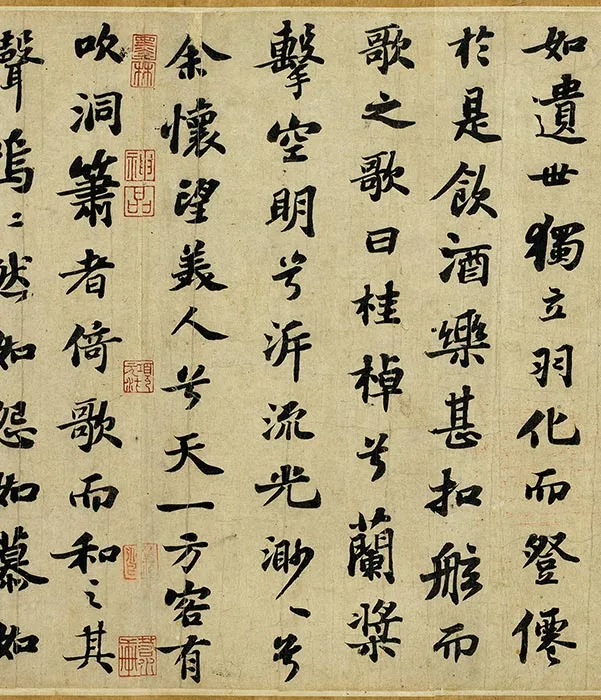 如遺世獨立羽化而登僊
於是飲酒樂甚扣舷而
歌之歌曰桂棹兮蘭槳
擊空明兮泝流光渺〻兮
余懷望美人兮天一方客有
吹洞簫者倚歌而和之其
聲嗚〻然如怨如慕如
墨林
神品